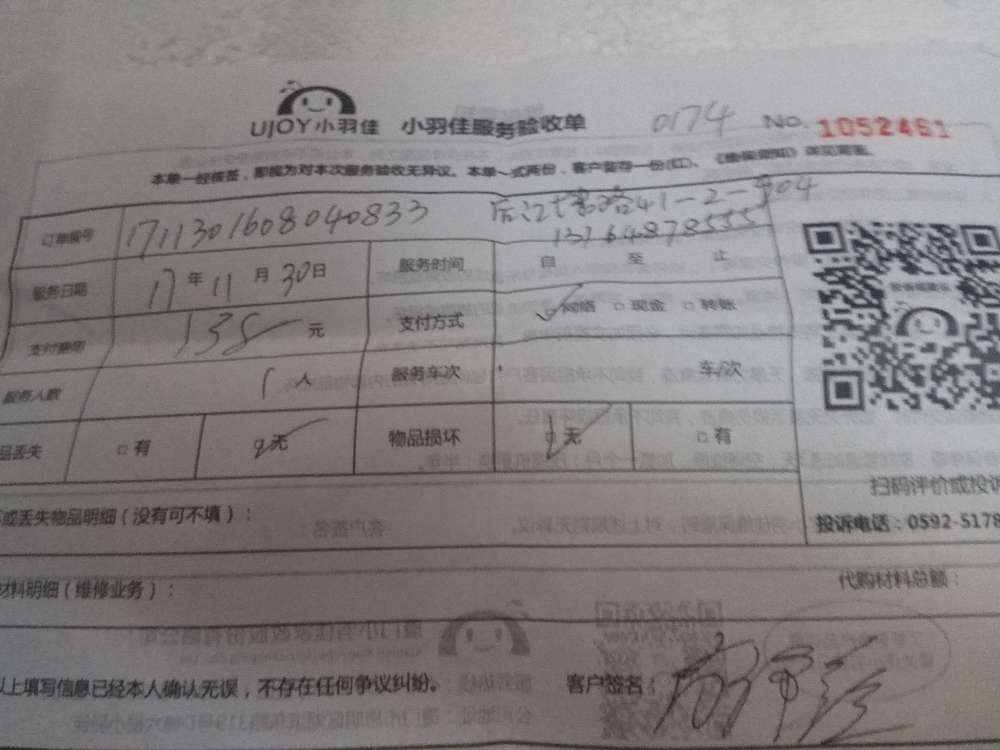 UJOY小羽佳 小羽佳服务验收单 0174 No. 1052461
本单一经核签，即视为对本次服务验收无异议。本单一式两份，客户留存一份(红)、《维保须知》详见背面。
订单编号 171130160804083​3 41-2-904
13764878555
服务日期 17年11月30日 服务时间 自 至 止
支付费用 138 元 支付方式 网络 □现金 □转账
服务人数 1人 服务车次 车/次
品丢失 □有 无 物品损坏 无 □有
扫码评价或投诉
或丢失物品明细（没有可不填）： 投诉电话：0592-5178
材料明细（维修业务）： 代购材料总额：
以上填写信息已经本人确认无误，不存在任何争议纠纷。 客户签名：